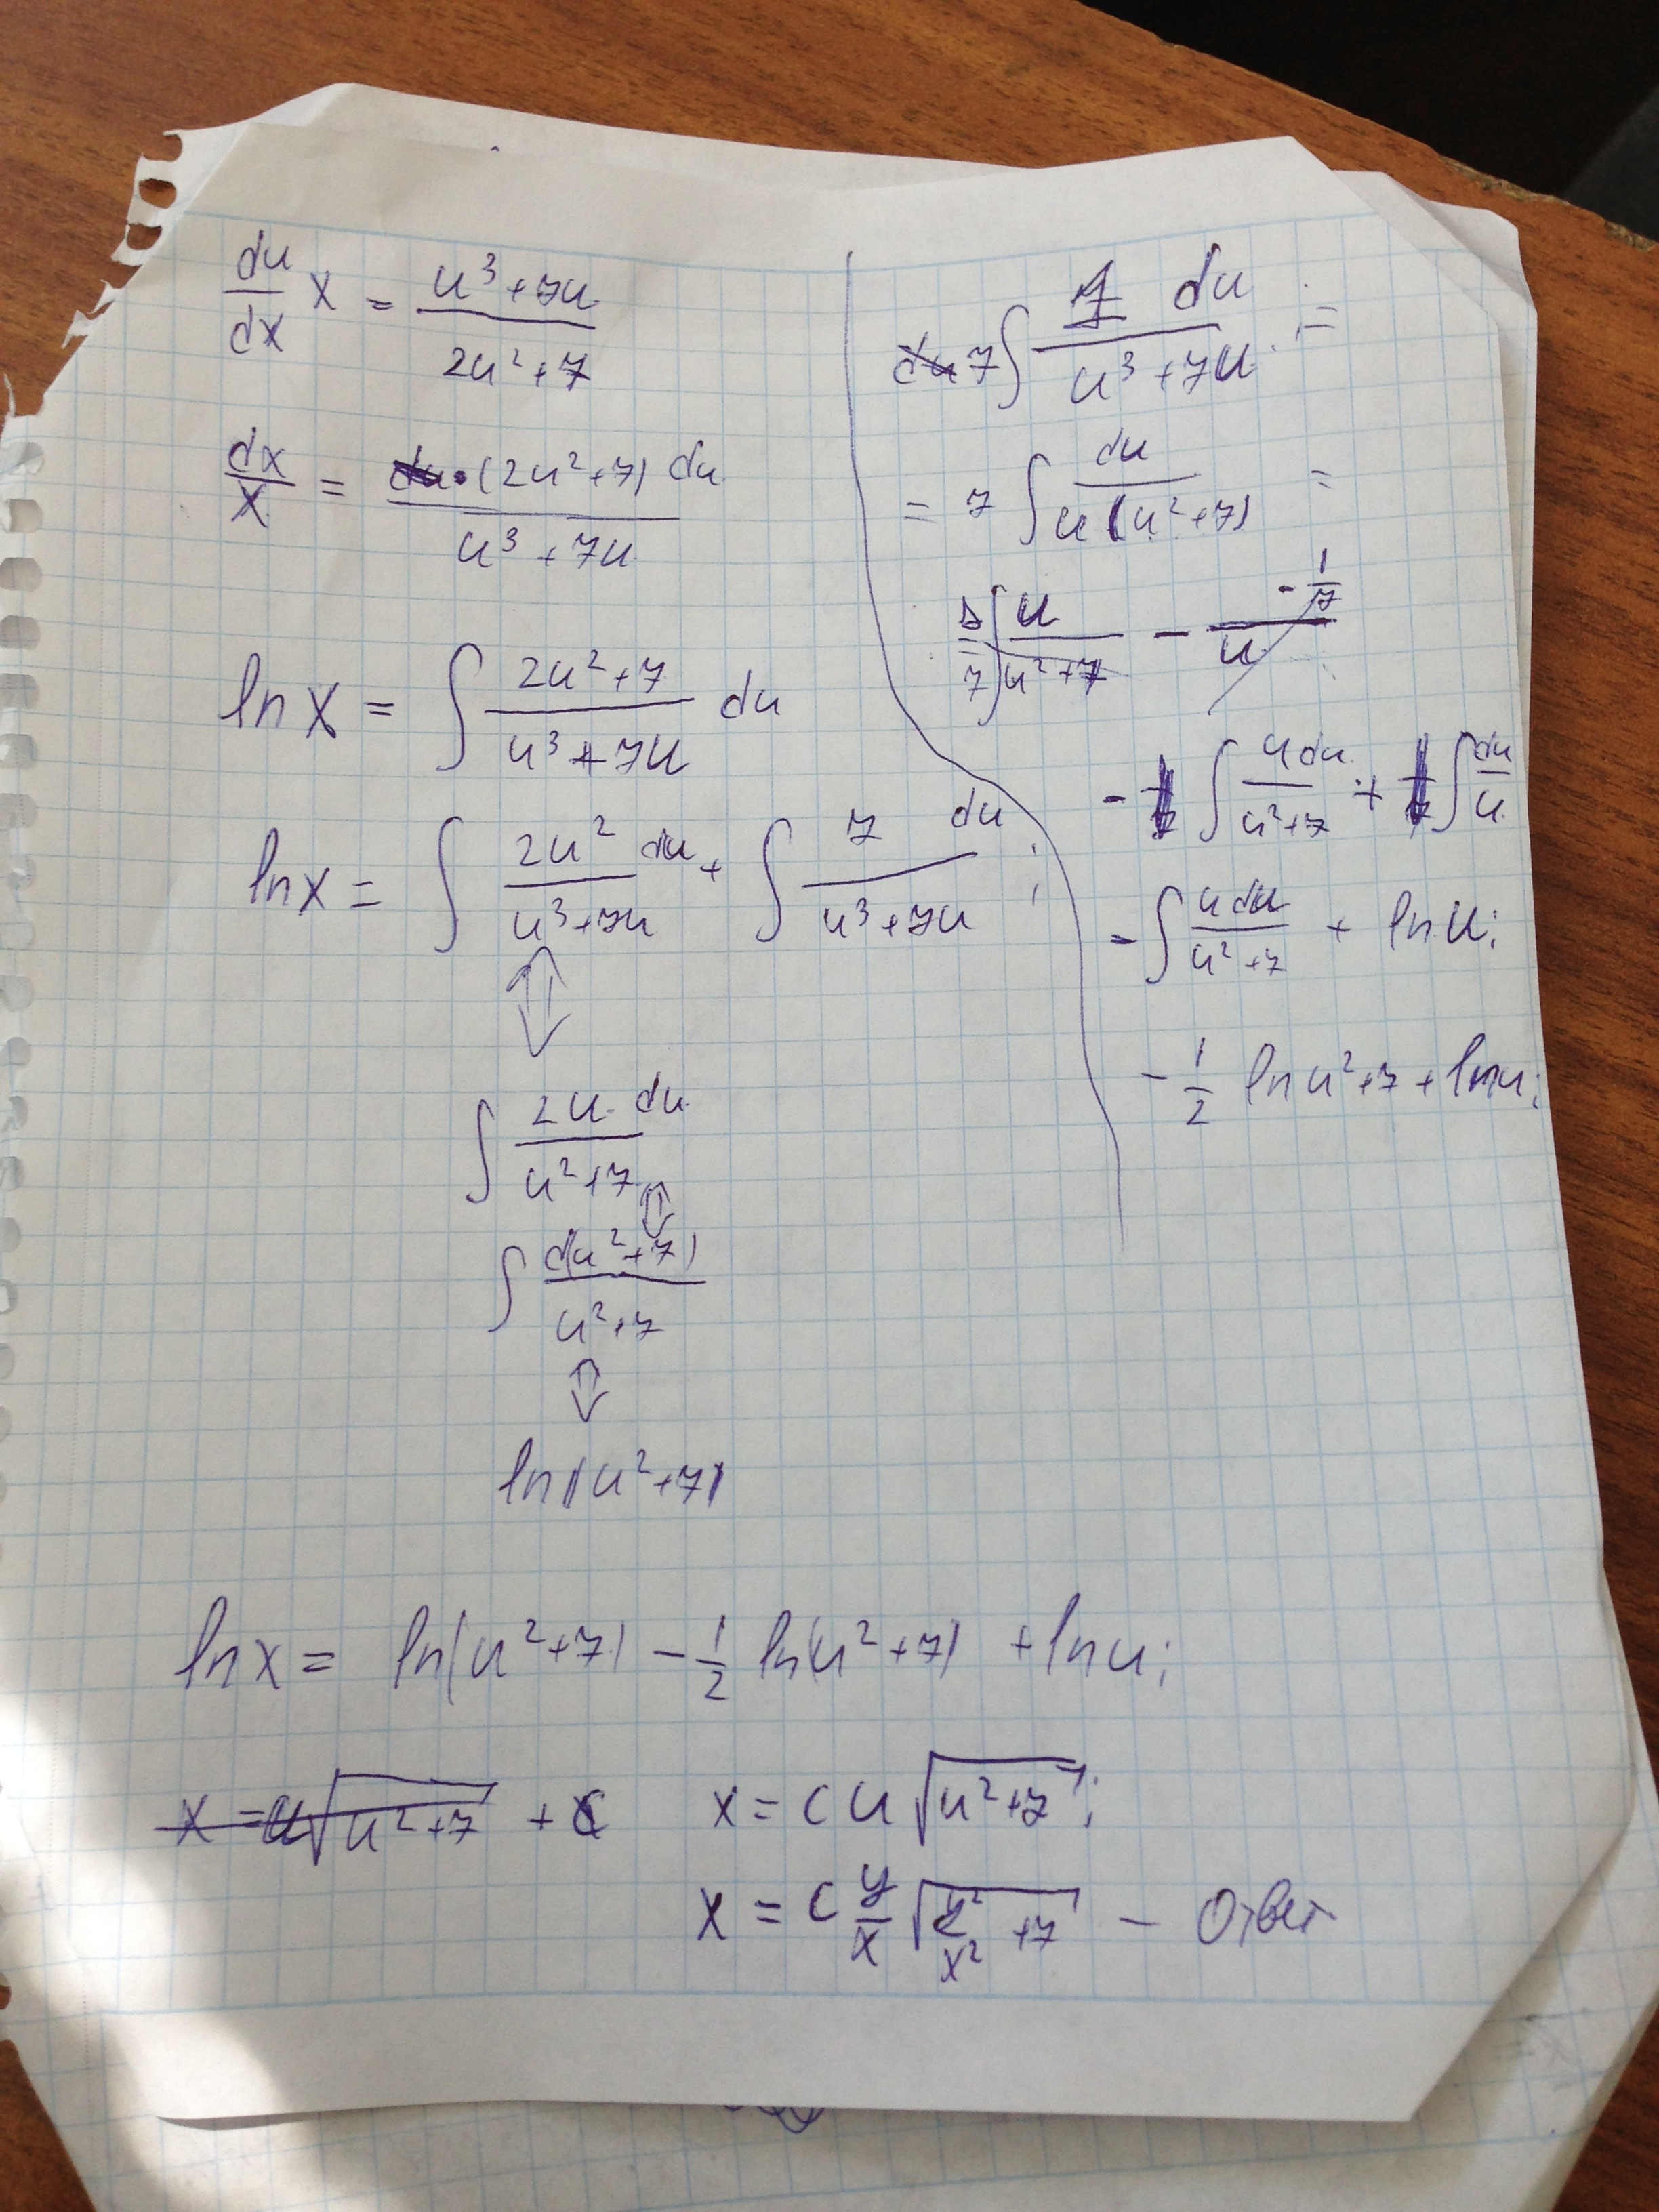 du/dx x = (u³+7u)/(2u²+7)
dx/x = (2u²+7) du/(u³+7u)
ln x = ∫ (2u²+7)/(u³+7u) du
ln x = ∫ 2u²/(u³+7u) du + ∫ 7 du/(u³+7u) ;
⇕
∫ 2u du/(u²+7)
⇕
∫ d(u²+7)/(u²+7)
⇕
ln(u²+7)
7 ∫ 1 du/(u³+7u) =
= 7 ∫ du/(u(u²+7)) =
7 ∫ u/(u²+7) - (-1/7)/u
- ∫ u du/(u²+7) + ∫ du/u
- ∫ u du/(u²+7) + ln u;
- 1/2 ln u²+7 + ln u;
ln x = ln(u²+7) - 1/2 ln(u²+7) + ln u;
x = u√(u²+7) + C x = C u √(u²+7) ;
x = C y/x √(y²/x² +7) - Ответ